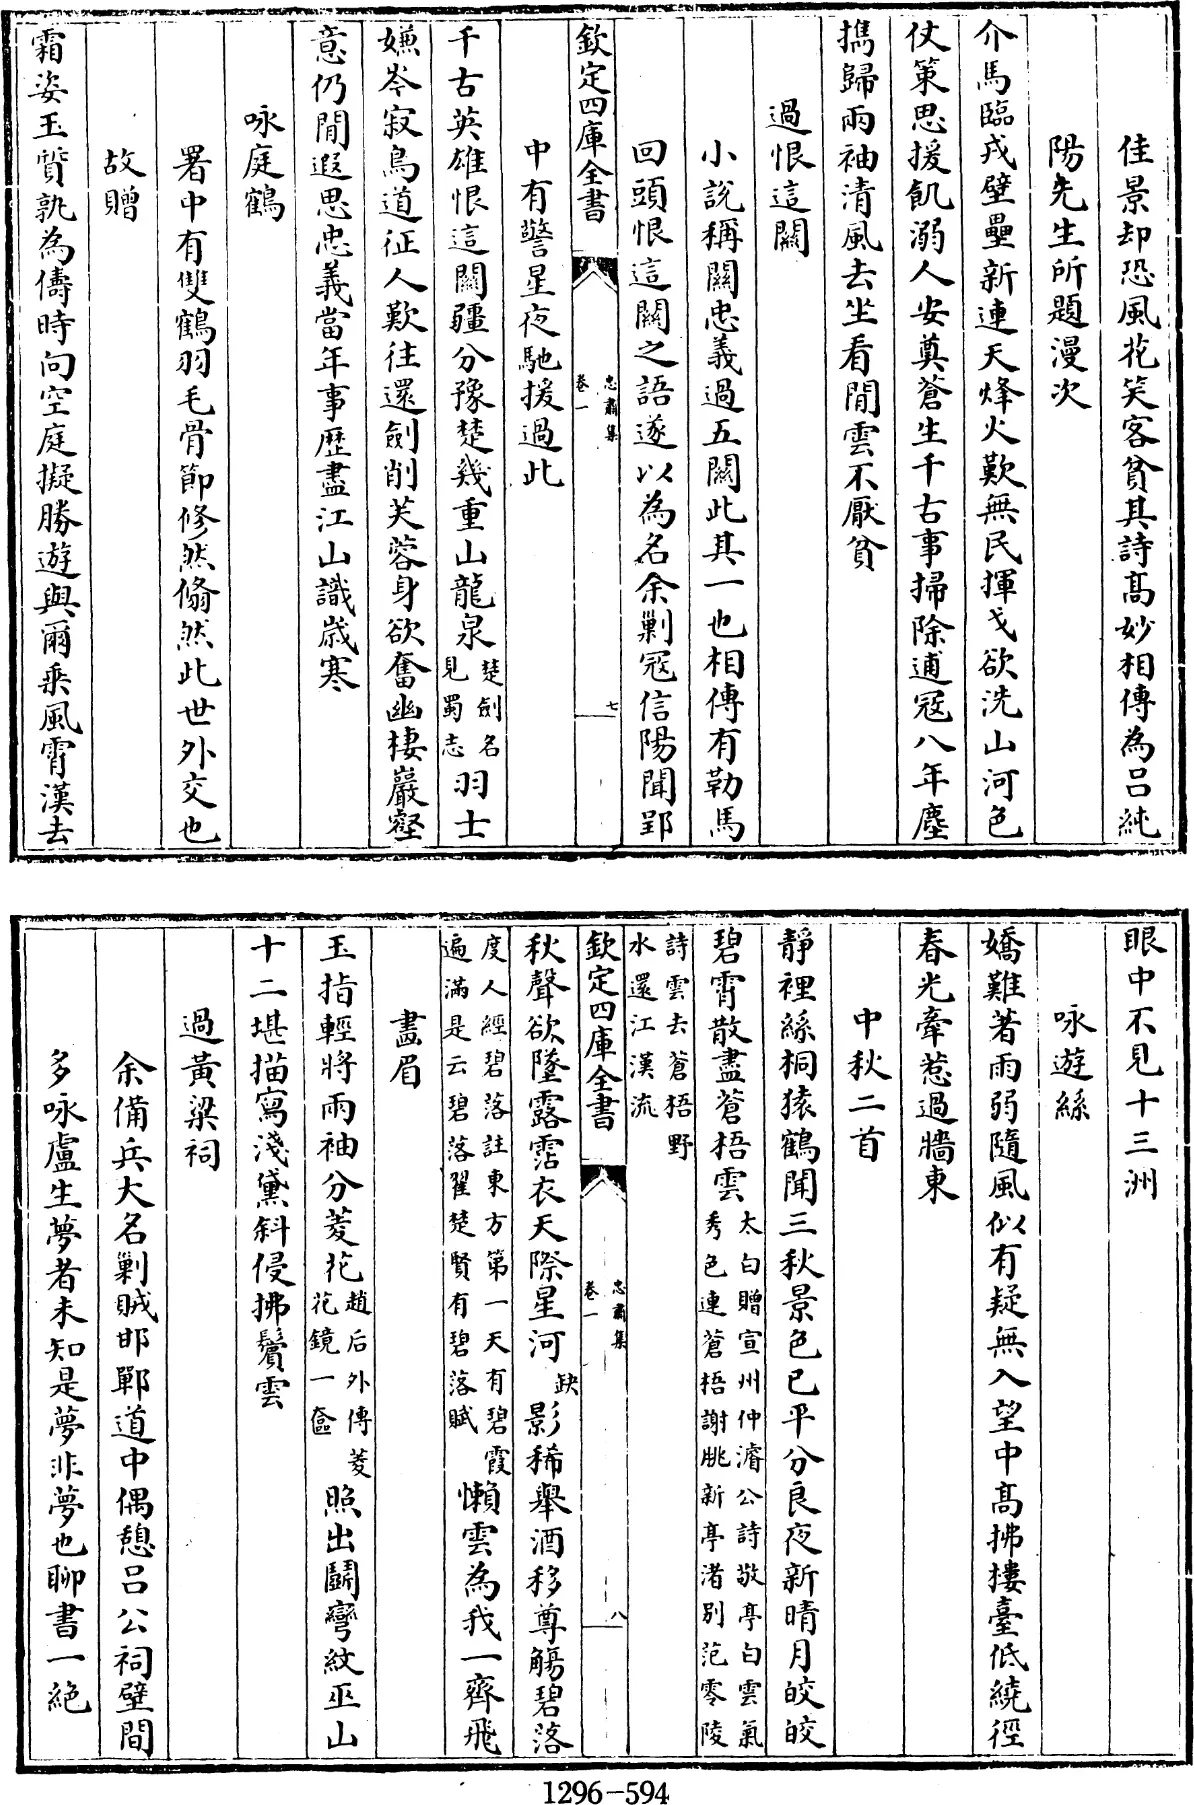 佳景却恐風花笑客貧其詩髙妙相傳為吕純
陽先生所題漫次
介馬臨戎壁壘新連天烽火歎無民揮戈欲洗山河色
仗策思援飢溺人安奠蒼生千古事掃除逋冦八年塵
擕歸兩袖清風去坐看閒雲不厭貧
過恨這關
小說稱關忠義過五關此其一也相傳有勒馬
回頭恨這關之語遂以為名余剿冦信陽聞郢
欽定四庫全書
忠肅集
卷一
七
中有警星夜馳援過此
千古英雄恨這關疆分豫楚幾重山龍泉楚劍名見蜀志羽士
嫌岑寂鳥道征人歎往還劍削芙蓉身欲奮幽棲巖壑
意仍閒遐思忠義當年事歷盡江山識歲寒
咏庭鶴
署中有雙鶴羽毛骨節修然翛然此世外交也
故贈
霜姿玉質孰為儔時向空庭擬勝遊與爾乗風霄漢去
眼中不見十三洲
咏遊絲
嬌難著雨弱隨風似有疑無入望中髙拂樓臺低繞徑
春光牽惹過牆東
中秋二首
靜裡絲桐猿鶴聞三秋景色已平分良夜新晴月皎皎
碧霄散盡蒼梧雲太白贈宣州仲濬公詩敬亭白雲氣秀色連蒼梧謝朓新亭渚别范零陵
詩雲去蒼梧野水還江漢流
欽定四庫全書
忠肅集
卷一
八
秋聲欲墜露霑衣天際星河缺影稀舉酒移尊觴碧落
度人經碧落註東方第一天有碧霞遍滿是云碧落翟楚賢有碧落賦懶雲為我一齊飛
畫眉
玉指輕將兩袖分菱花趙后外傳菱花鏡一奩照出鬭彎紋巫山
十二堪描寫淺黛斜侵拂鬢雲
過黃粱祠
余備兵大名剿賊邯鄲道中偶憩吕公祠壁間
多咏盧生夢者未知是夢非夢也聊書一絶
1296-594